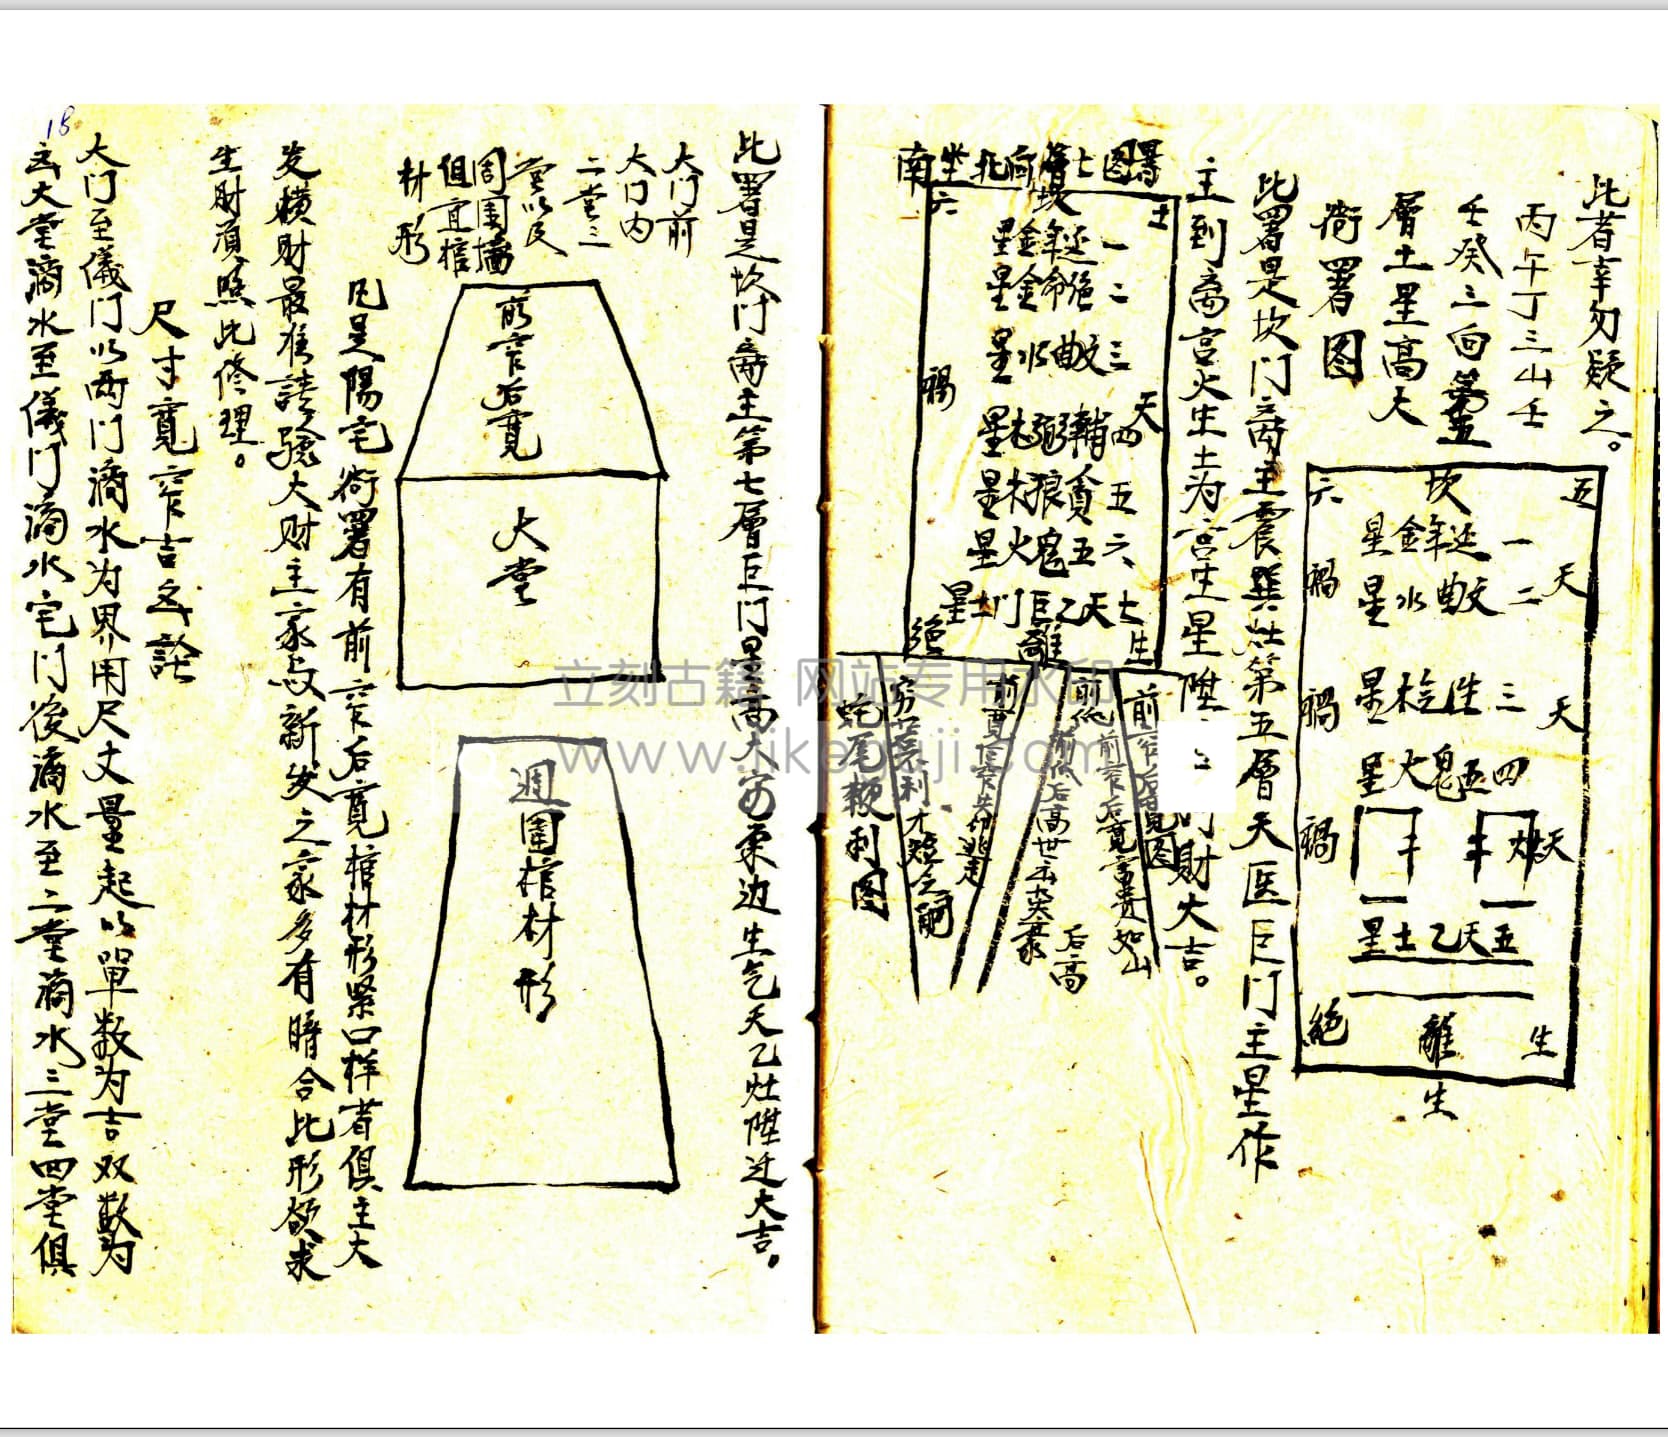 此者幸勿疑之。
丙午丁三山壬
壬癸三向第五
層土星高大
衙署图
五 坎 六
一延年金星
二文曲水星
三
木星
四五鬼火星
五天乙土星
天 天 天
禍 禍 禍
灶
生 離 絕
生
此署是坎门离主震巽灶第五層天医巨门主星作
主到离宫火生土为宫生星陞
财大吉。
署图七層坎向北坐南
七 六
一延年金星
二絕命金星
三文曲水星
四輔弼木星
五貪狼木星
六五鬼火星
七天乙巨门土星
天 禍
生 離 絕
前窄后寬图
前窄后寬富贵如山
前低后高
前低后高世出英豪
蛇尾鞭利图
此署是坎门离主第七層巨门星高大安東边生气天乙灶陞迁大吉。
大门前
大门内
二堂三
堂以及
周围墙
俱宜棺
材形
前窄后寬
大堂
週围棺材形
凡是陽宅衙署有前窄后寬棺材形緊口样者俱主大
发横财最准諸發大财主家与新发之家多有暗合此形欲求
生财须照此修理。
尺寸寬窄吉凶訣
大门至儀门以两门滴水为界用尺丈量起以單数为吉双数为
凶大堂滴水至儀门滴水宅门後滴水至二堂滴水三堂四堂俱
18
立刻古籍 网站专用水印
www.likeguji.com